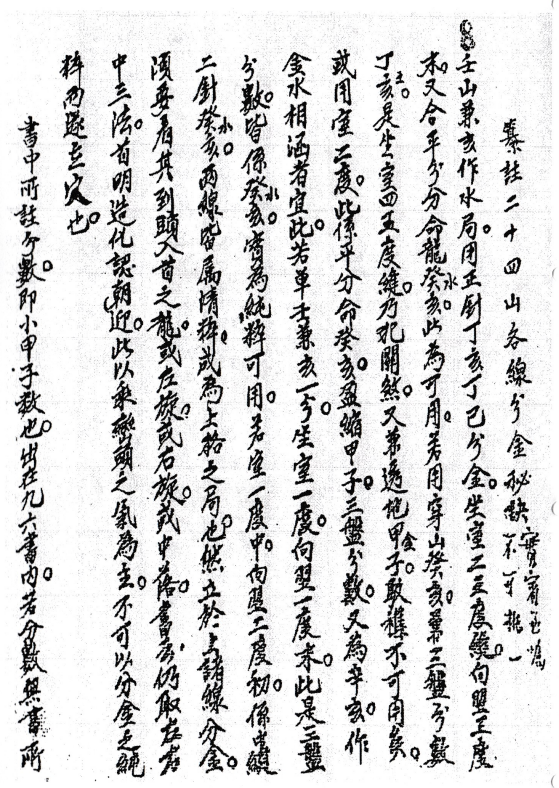 纂註二十四山各線分金秘訣
壬山兼亥作水局用正針丁亥丁巳分金坐室二三度縫向翌三度
末又合平分分命龍癸亥水此為可用若用穿山癸亥兼三盤分數
丁亥土是坐室四五度縫乃犯關然又兼透地甲子金駁雜不可用矣
或用室二度此係平分命癸亥盈縮甲子三盤分數又為辛亥作
金水相涵者宜此若單壬兼亥一分坐室一度向翌一度末此是三盤
分數皆係癸亥水實為純粹可用若室一度中向翌二度初係中縫
二針癸亥水兩線皆屬清粹成為上格之局也然立於上諸線分金
須要看其到頭入首之龍或左旋或右旋或中落書云仍取左右
中三法首明造化認朝迎此以乘巒頭之氣為主不可以分金之純
粹而遂立穴也
書中所註分數即小甲子數也出在九六書內若分數無書所